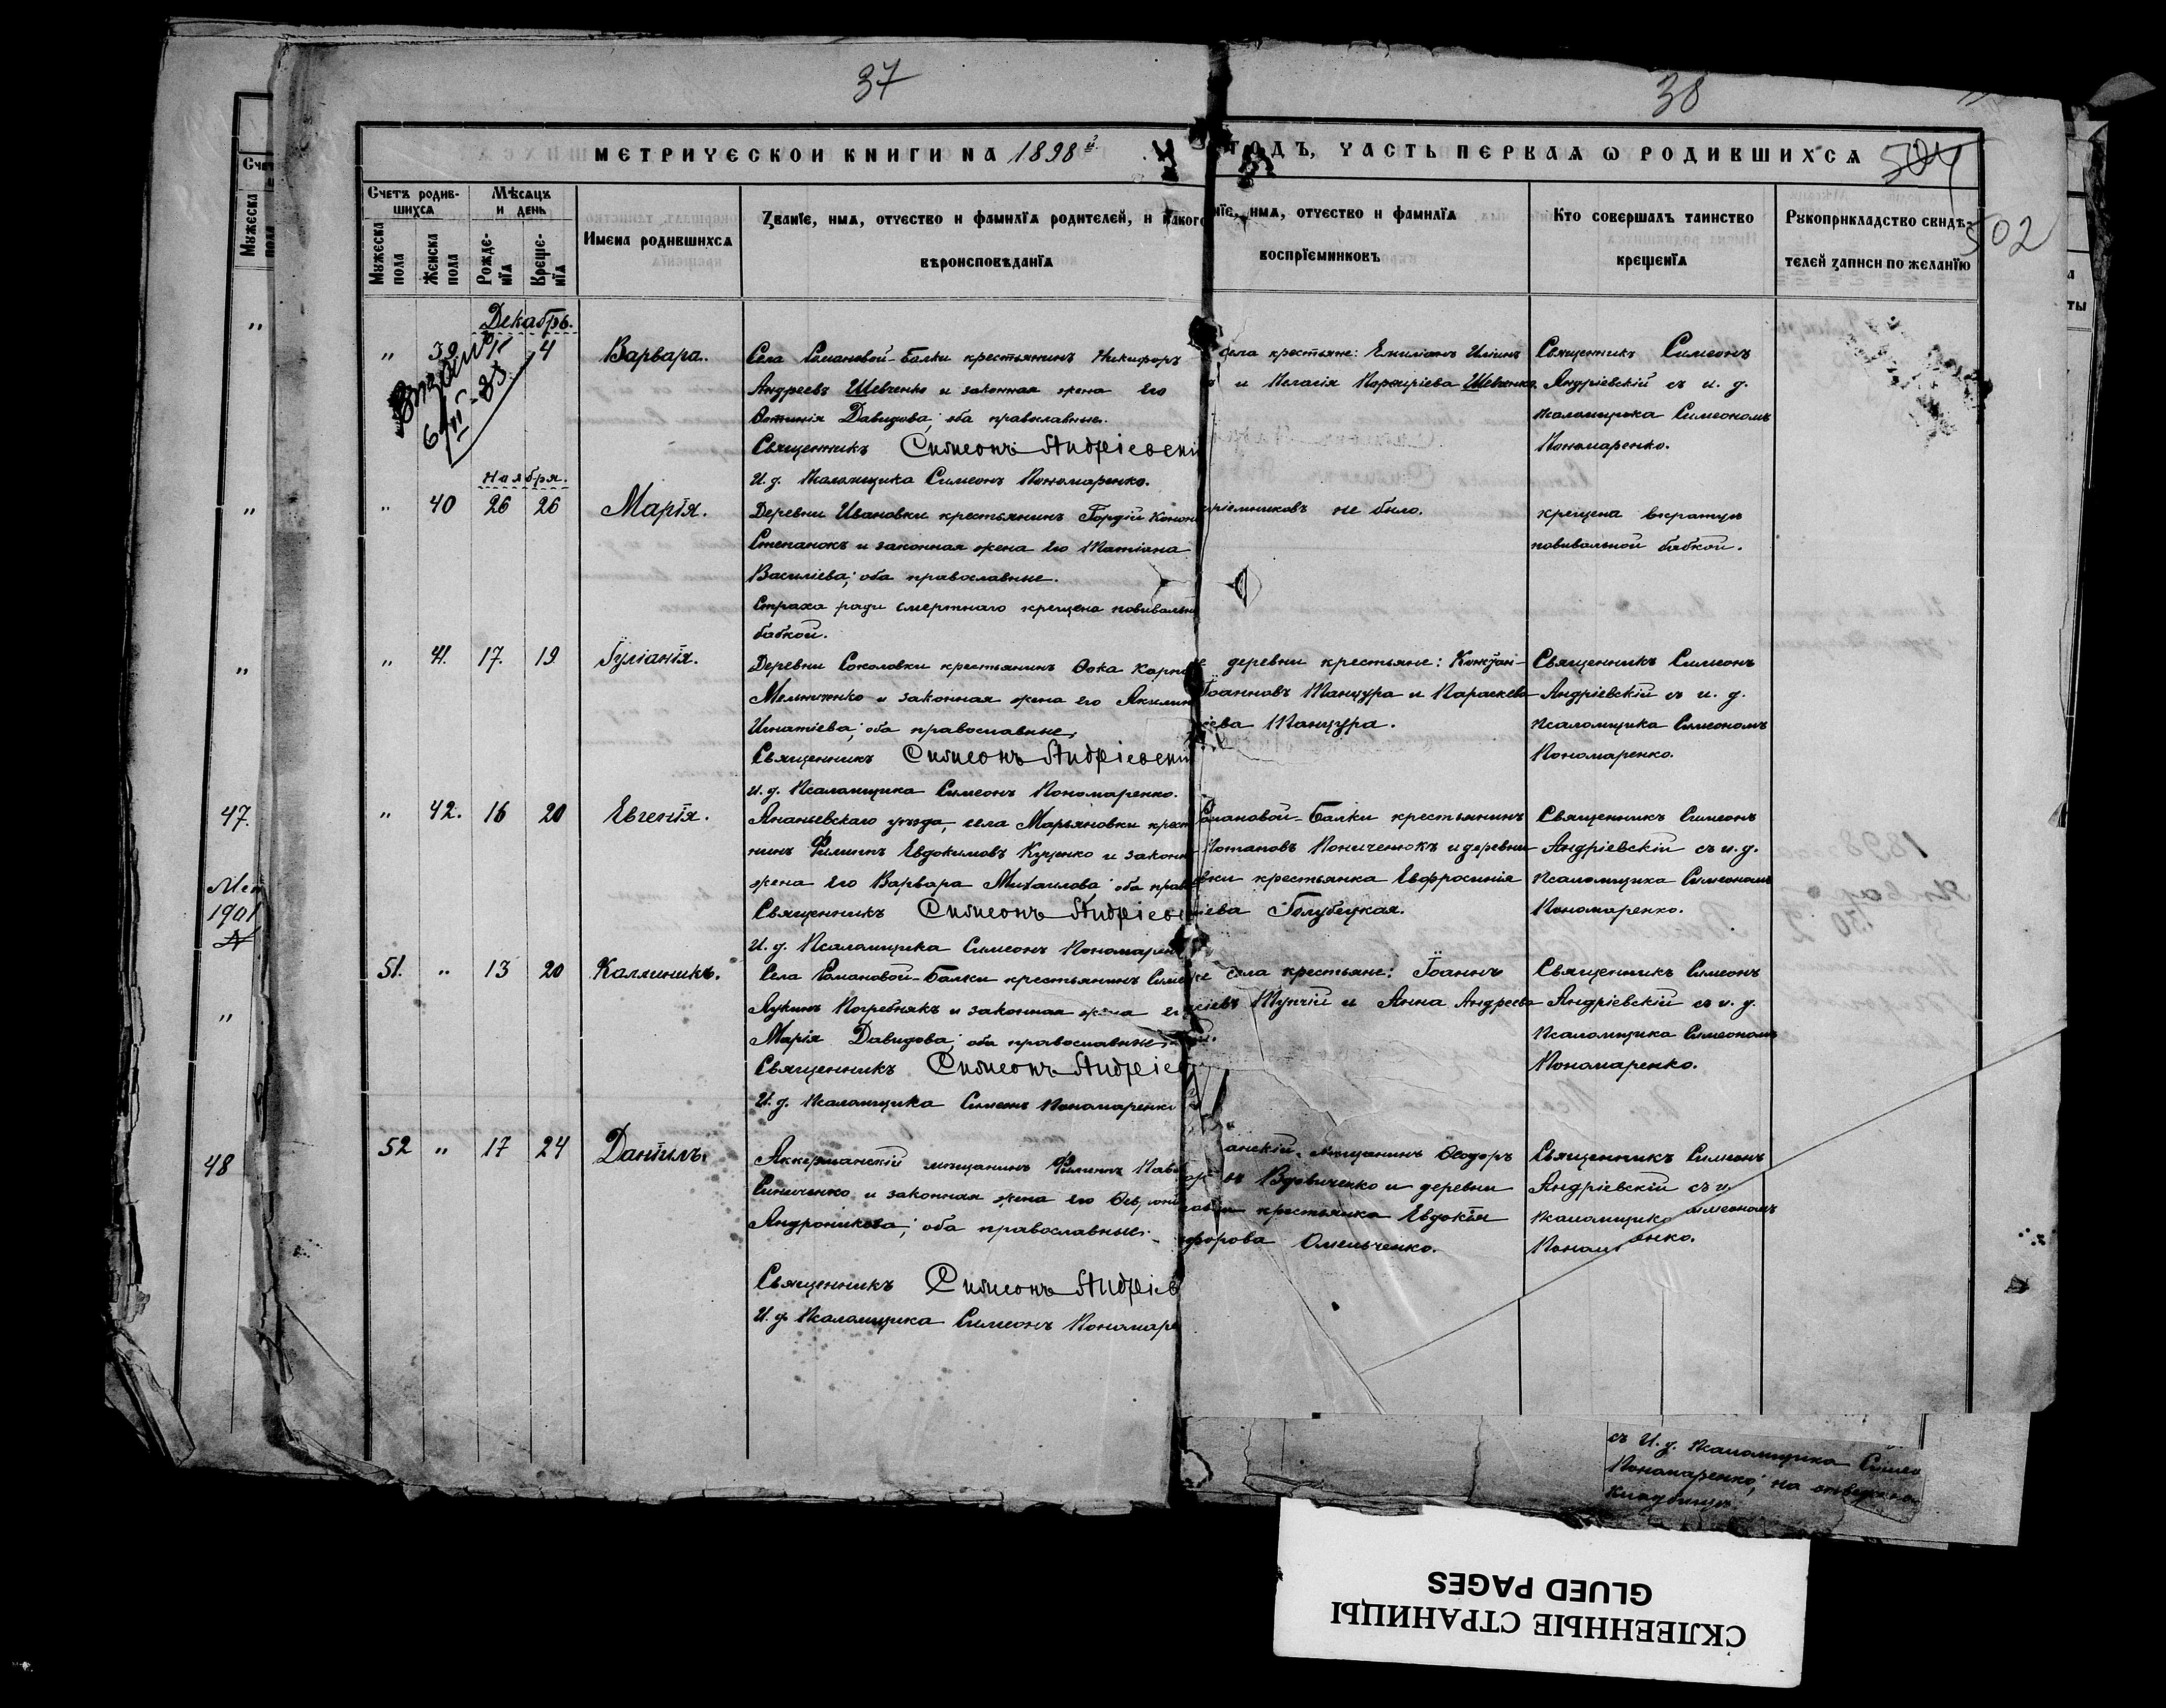 37
38
МЕТРИЧЕСКОЙ КНИГИ НА 1898й
ГОДЪ, ЧАСТЬ ПЕРВАЯ О РОДИВШИХСЯ
504
502
Счетъ родив-
шихся
Мужеска пола
Женска пола
Мѣсяцъ
и день
Рожде-
нія
Креще-
нія
Имена родившихся
Званіе, имя, отчество и фамилія родителей, и какого
вѣроисповѣданія
ніе, имя, отчество и фамилія
воспріемниковъ
Кто совершалъ таинство
крещенія
Рукоприкладство свидѣ-
телей записи по желанію
Декабрь.
" 39 4
Варвара.
Села Романовой-Балки крестьянинъ Никифоръ
Андреевъ Шевченко и законная жена его
Фотинія Давидова; оба православные.
Священникъ Симеонъ Андріевскі
И. д. Псаломщика Симеонъ Пономаренко.
села крестьяне: Емиліанъ
и Пелагія Порфиріева Шевченко.
Священникъ Симеонъ
Андріевскій съ и. д.
псаломщика Симеономъ
Пономаренко.
Ноября.
" 40 26 26
Марія.
Деревни Ивановки крестьянинъ Гордій Конон
Степанокъ и законная жена его Татіана
Василіева; оба православные.
Страха ради смертнаго крещена повивальн
бабкой.
пріемниковъ не было.
крещена вкратцѣ
повивальной бабкой.
" 41. 17. 19
Іуліанія.
Деревни Соколовки крестьянинъ Фока Карпо
Мельниченко и законная жена его Акилин
Игнатіева; оба православные,
Священникъ Симеонъ Андріевскі
и. д. Псаломщика Симеонъ Пономаренко.
деревни крестьяне:
Іоанновъ Танцура и Параскева
еева Танцура.
Священникъ Симеонъ
Андріевскій съ и. д.
псаломщика Симеономъ
Пономаренко.
" 42. 16 20
Евгенія.
Ананьевскаго уѣзда, села Марьяновки крест
нинъ Филиппъ Евдокимовъ Куценко и законн
жена его Варвара Михаилова оба прав
Священникъ Симеонъ Андріев
И. д. Псаломщика Симеонъ Пономарен
омановой-Балки крестьянинъ
Потаповъ Пониченокъ и деревни
вки крестьянка Евфросинія
іева Голубецкая.
Священникъ Симеонъ
Андріевскій съ и. д.
псаломщика Симеономъ
Пономаренко.
51. " 13 20
Каллиникъ.
Села Романовой-Балки крестьянинъ Симе
Лукинъ Погребнякъ и законная жена ег
Марія Давидова; оба православные.
Священникъ Симеонъ Андріев
И. д. Псаломщика Симеонъ Пономаренко
села крестьяне: Іоаннъ
Тупчій и Анна Андреева
Священникъ Симеонъ
Андріевскій съ и. д.
псаломщика Симеономъ
Пономаренко.
52 " 17 24
Даніилъ.
Аккерманскій мѣщанинъ Филиппъ Пав
Синиченко и законная жена его
Андроникова; оба православные.
Священникъ Симеонъ Андріев
И. д. Псаломщика Симеонъ Пономаре
анскій мѣщанинъ Ѳеодоръ
Вдовиченко и деревни
крестьянка Евдокія
дорова Омельченко.
Священникъ Симеонъ
Андріевскій съ и.
псаломщика имеономъ
Поном енко.
47.
1901
48
съ И. д. Псаломщика Симео
Пономаренко; на отведенно
кладбищѣ
СКЛЕЕННЫЕ СТРАНИЦЫ
GLUED PAGES